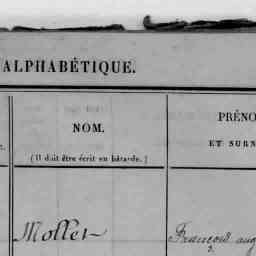 ALPHABÉTIQUE.
NOM.
(Il doit être écrit en bâtarde.)
PRÉNO
ET SURN
Mollet
François aug